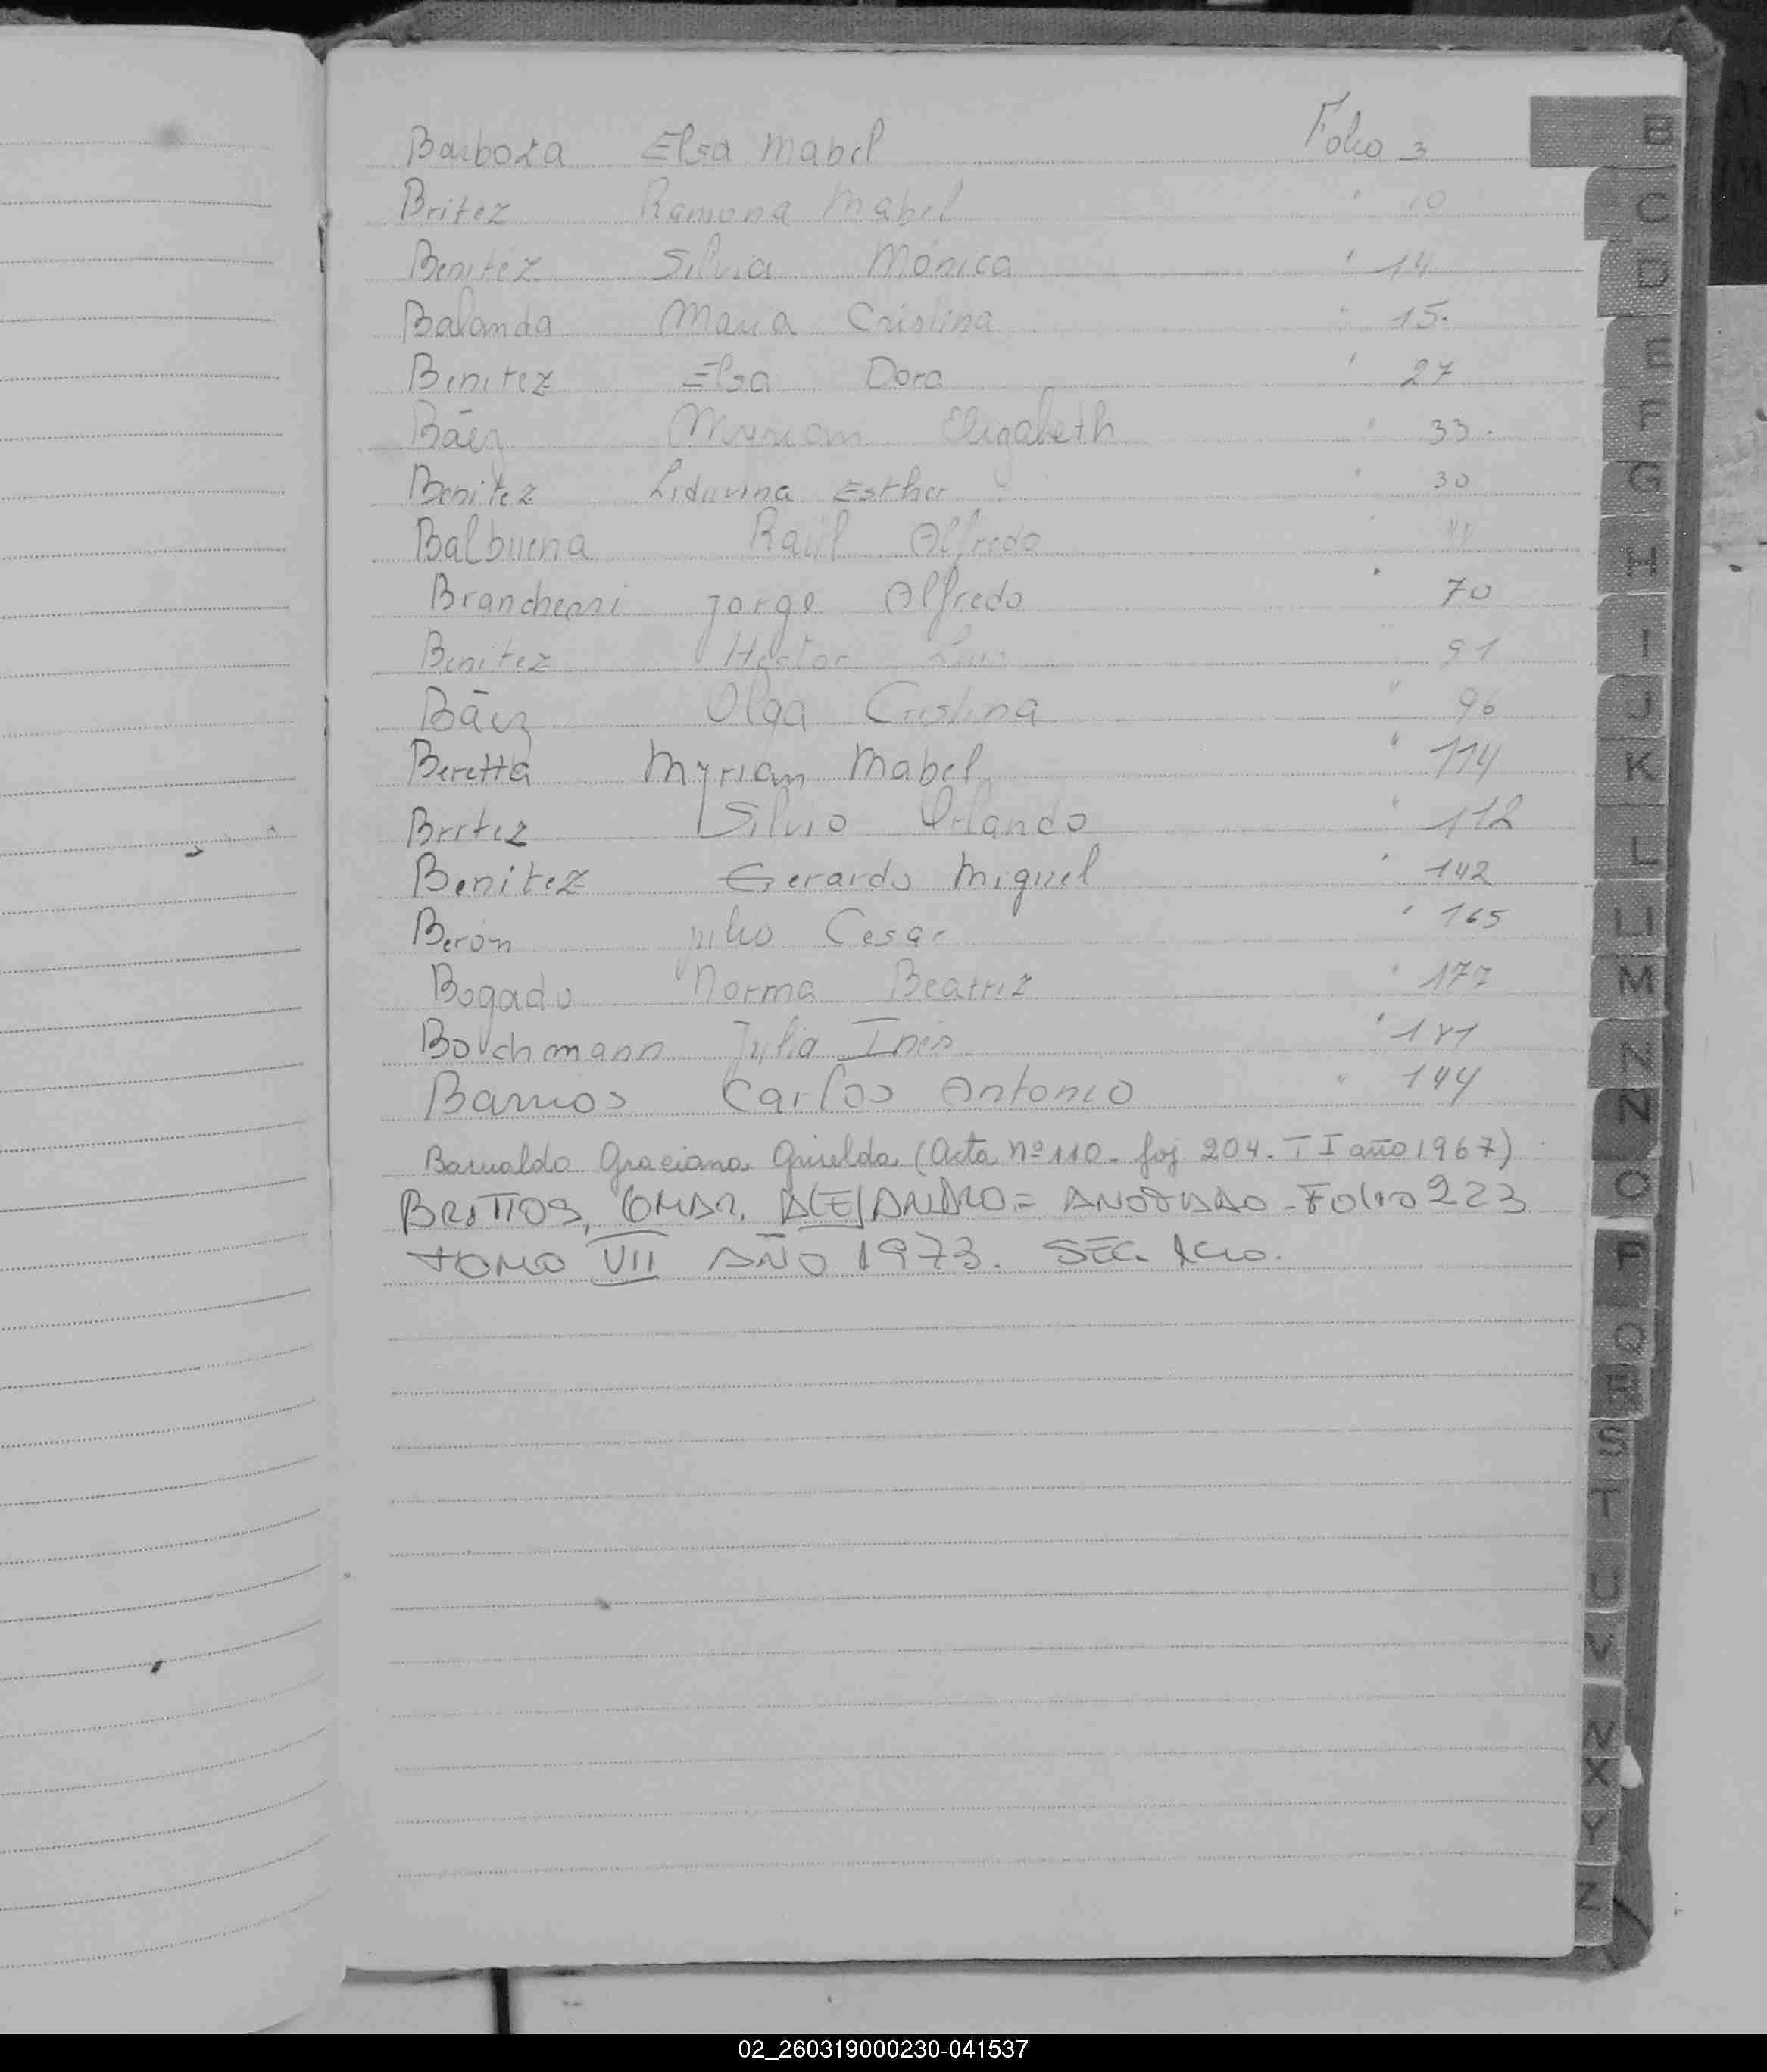 Barboza Elsa Mabel Folio 3
Britez Ramona Mabel " 10
Benitez Silvia Mónica " 14
Balanda Maria Cristina " 15.
Benitez Elsa Dora " 27
Báez Myriam Elizabeth " 33.
Benitez Liduvina Esther " 30
Balbuena Raúl Alfredo "
Jorge Alfredo " 70
Benitez Hector Luis 91
Báez Olga Cristina " 96
Beretta Myrian Mabel " 114
Britez Silvio Orlando " 112
Benitez Gerardo Miguel " 142
Berón Julio Cesar " 165
Bogado Norma Beatriz " 177
Julia Inés " 181
Barrios Carlos Antonio " 144
Basualdo Graciana Griselda (Acta nº 110. foj 204. T I año 1967)
BRITTOS, OMAR, ALEJANDRO = ANOTADO - FOLIO 223
TOMO VII AÑO 1973. SEC.
B
C
D
E
F
G
H
I
J
K
L
LL
M
N
Ñ
O
P
Q
R
S
T
U
V
X
Y
Z
02_260319000230-041537